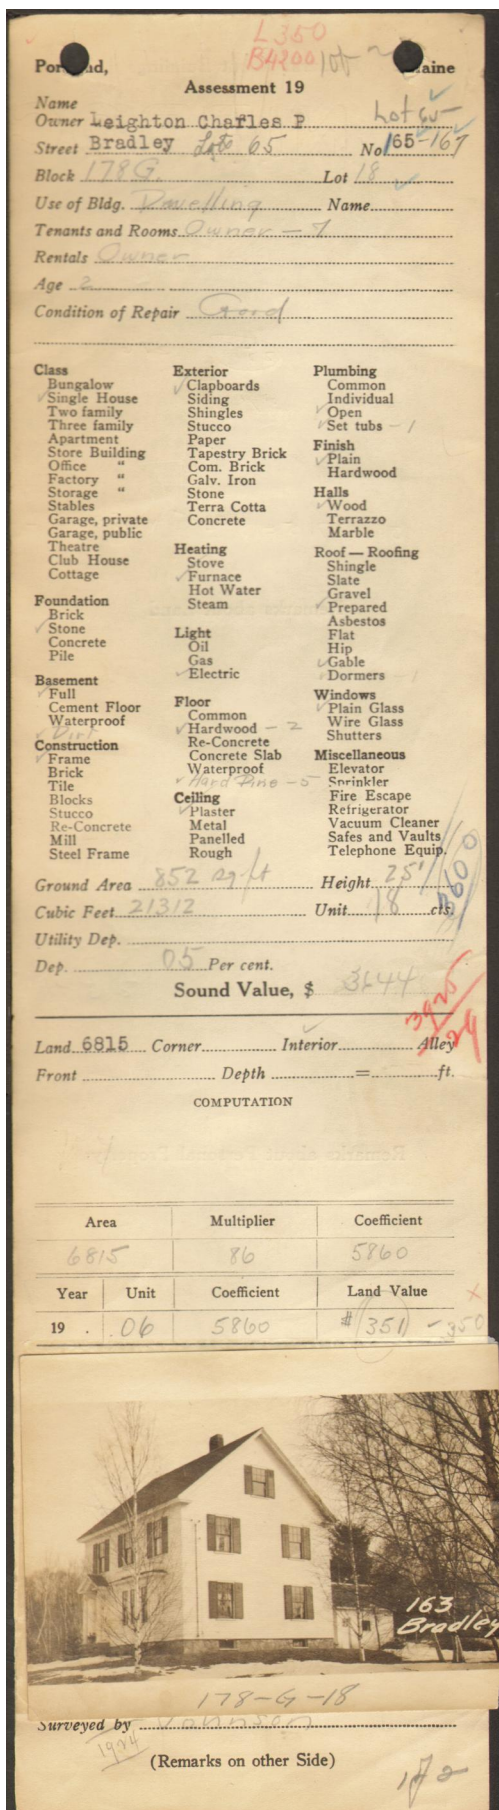 L350
B4200 lot
Portland, Maine
Assessment 19
Name
Owner Leighton Charles P Lot 65
Street Bradley Lots 65 No 165-167
Block 178 G. Lot 18
Use of Bldg. Dwelling Name
Tenants and Rooms Owner - 7
Rentals Owner
Age 2
Condition of Repair Good
Class
Bungalow
Single House
Two family
Three family
Apartment
Store Building
Office "
Factory "
Storage "
Stables
Garage, private
Garage, public
Theatre
Club House
Cottage
Foundation
Brick
Stone
Concrete
Pile
Basement
Full
Cement Floor
Waterproof
Dirt
Construction
Frame
Brick
Tile
Blocks
Stucco
Re-Concrete
Mill
Steel Frame
Exterior
Clapboards
Siding
Shingles
Stucco
Paper
Tapestry Brick
Com. Brick
Galv. Iron
Stone
Terra Cotta
Concrete
Heating
Stove
Furnace
Hot Water
Steam
Light
Oil
Gas
Electric
Floor
Common
Hardwood - 2
Re-Concrete
Concrete Slab
Waterproof
Hard Pine - 5
Ceiling
Plaster
Metal
Panelled
Rough
Plumbing
Common
Individual
Open
Set tubs - 1
Finish
Plain
Hardwood
Halls
Wood
Terrazzo
Marble
Roof — Roofing
Shingle
Slate
Gravel
Prepared
Asbestos
Flat
Hip
Gable
Dormers - 1
Windows
Plain Glass
Wire Glass
Shutters
Miscellaneous
Elevator
Sprinkler
Fire Escape
Refrigerator
Vacuum Cleaner
Safes and Vaults
Telephone Equip.
Ground Area 852 sq-ft Height 25'
3600
Cubic Feet 21312 Unit 18 cts.
Utility Dep.
Dep. 05 Per cent.
Sound Value, $ 3644
3925/24
Land 6815 Corner Interior Alley
Front Depth = ft.
COMPUTATION
Area Multiplier Coefficient
6815 86 5860
Year Unit Coefficient Land Value
19 . .06 5860 # 351 - 350
163
Bradley
178-G-18
Surveyed by Johnson
1924
(Remarks on other Side)
1 of 2